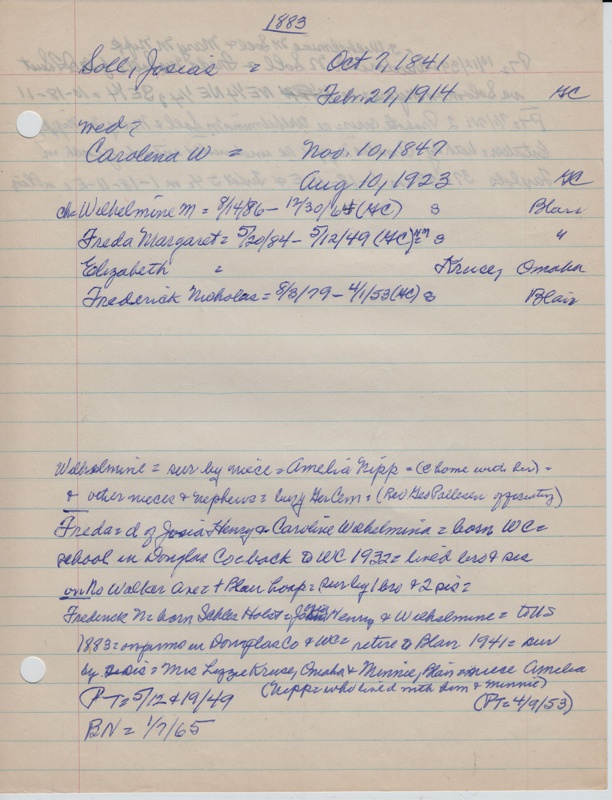 1883
Soll, Josias = Oct 7, 1841
Feb. 27, 1914 GC
med =
Carolena W = Nov. 10, 1847
Aug 10, 1923 GC
ch = Wilhelmine M = 8/14/86 - 12/30/64 (GC) s Blair
Freda Margaret = 5/20/84 - 5/12/49 (GC) = s "
Elizabeth = Kruse, Omaha
Frederick Nicholas = 8/3/79 - 4/1/53 (GC) s Blair
Wilhelmine = sur by niece = Amelia Nipp = (c home with her) =
& other nieces & nephews = bury Ger Cem = (Rev Geo Pallesen officiating)
Freda = d of Josia Henry & Caroline Wilhelmina = born WC =
school in Douglas Co = back to WC 1932 = lived bro & sis
on No Walker Ave = + Blair hosp = sur by 1 bro & 2 sis =
Frederick N = born Schles Holst = Henry & Wilhelmine = to US
1883 = on farms in Douglas Co & WC = retire to Blair 1941 = sur
by sis = Mrs Lizzie Kruse, Omaha & Minnie, Blair = niece Amelia
(Nipp = who lived with him & Minnie)
(PT = 5/12 & 19/49 (PT = 4/9/53)
BN = 1/7/65